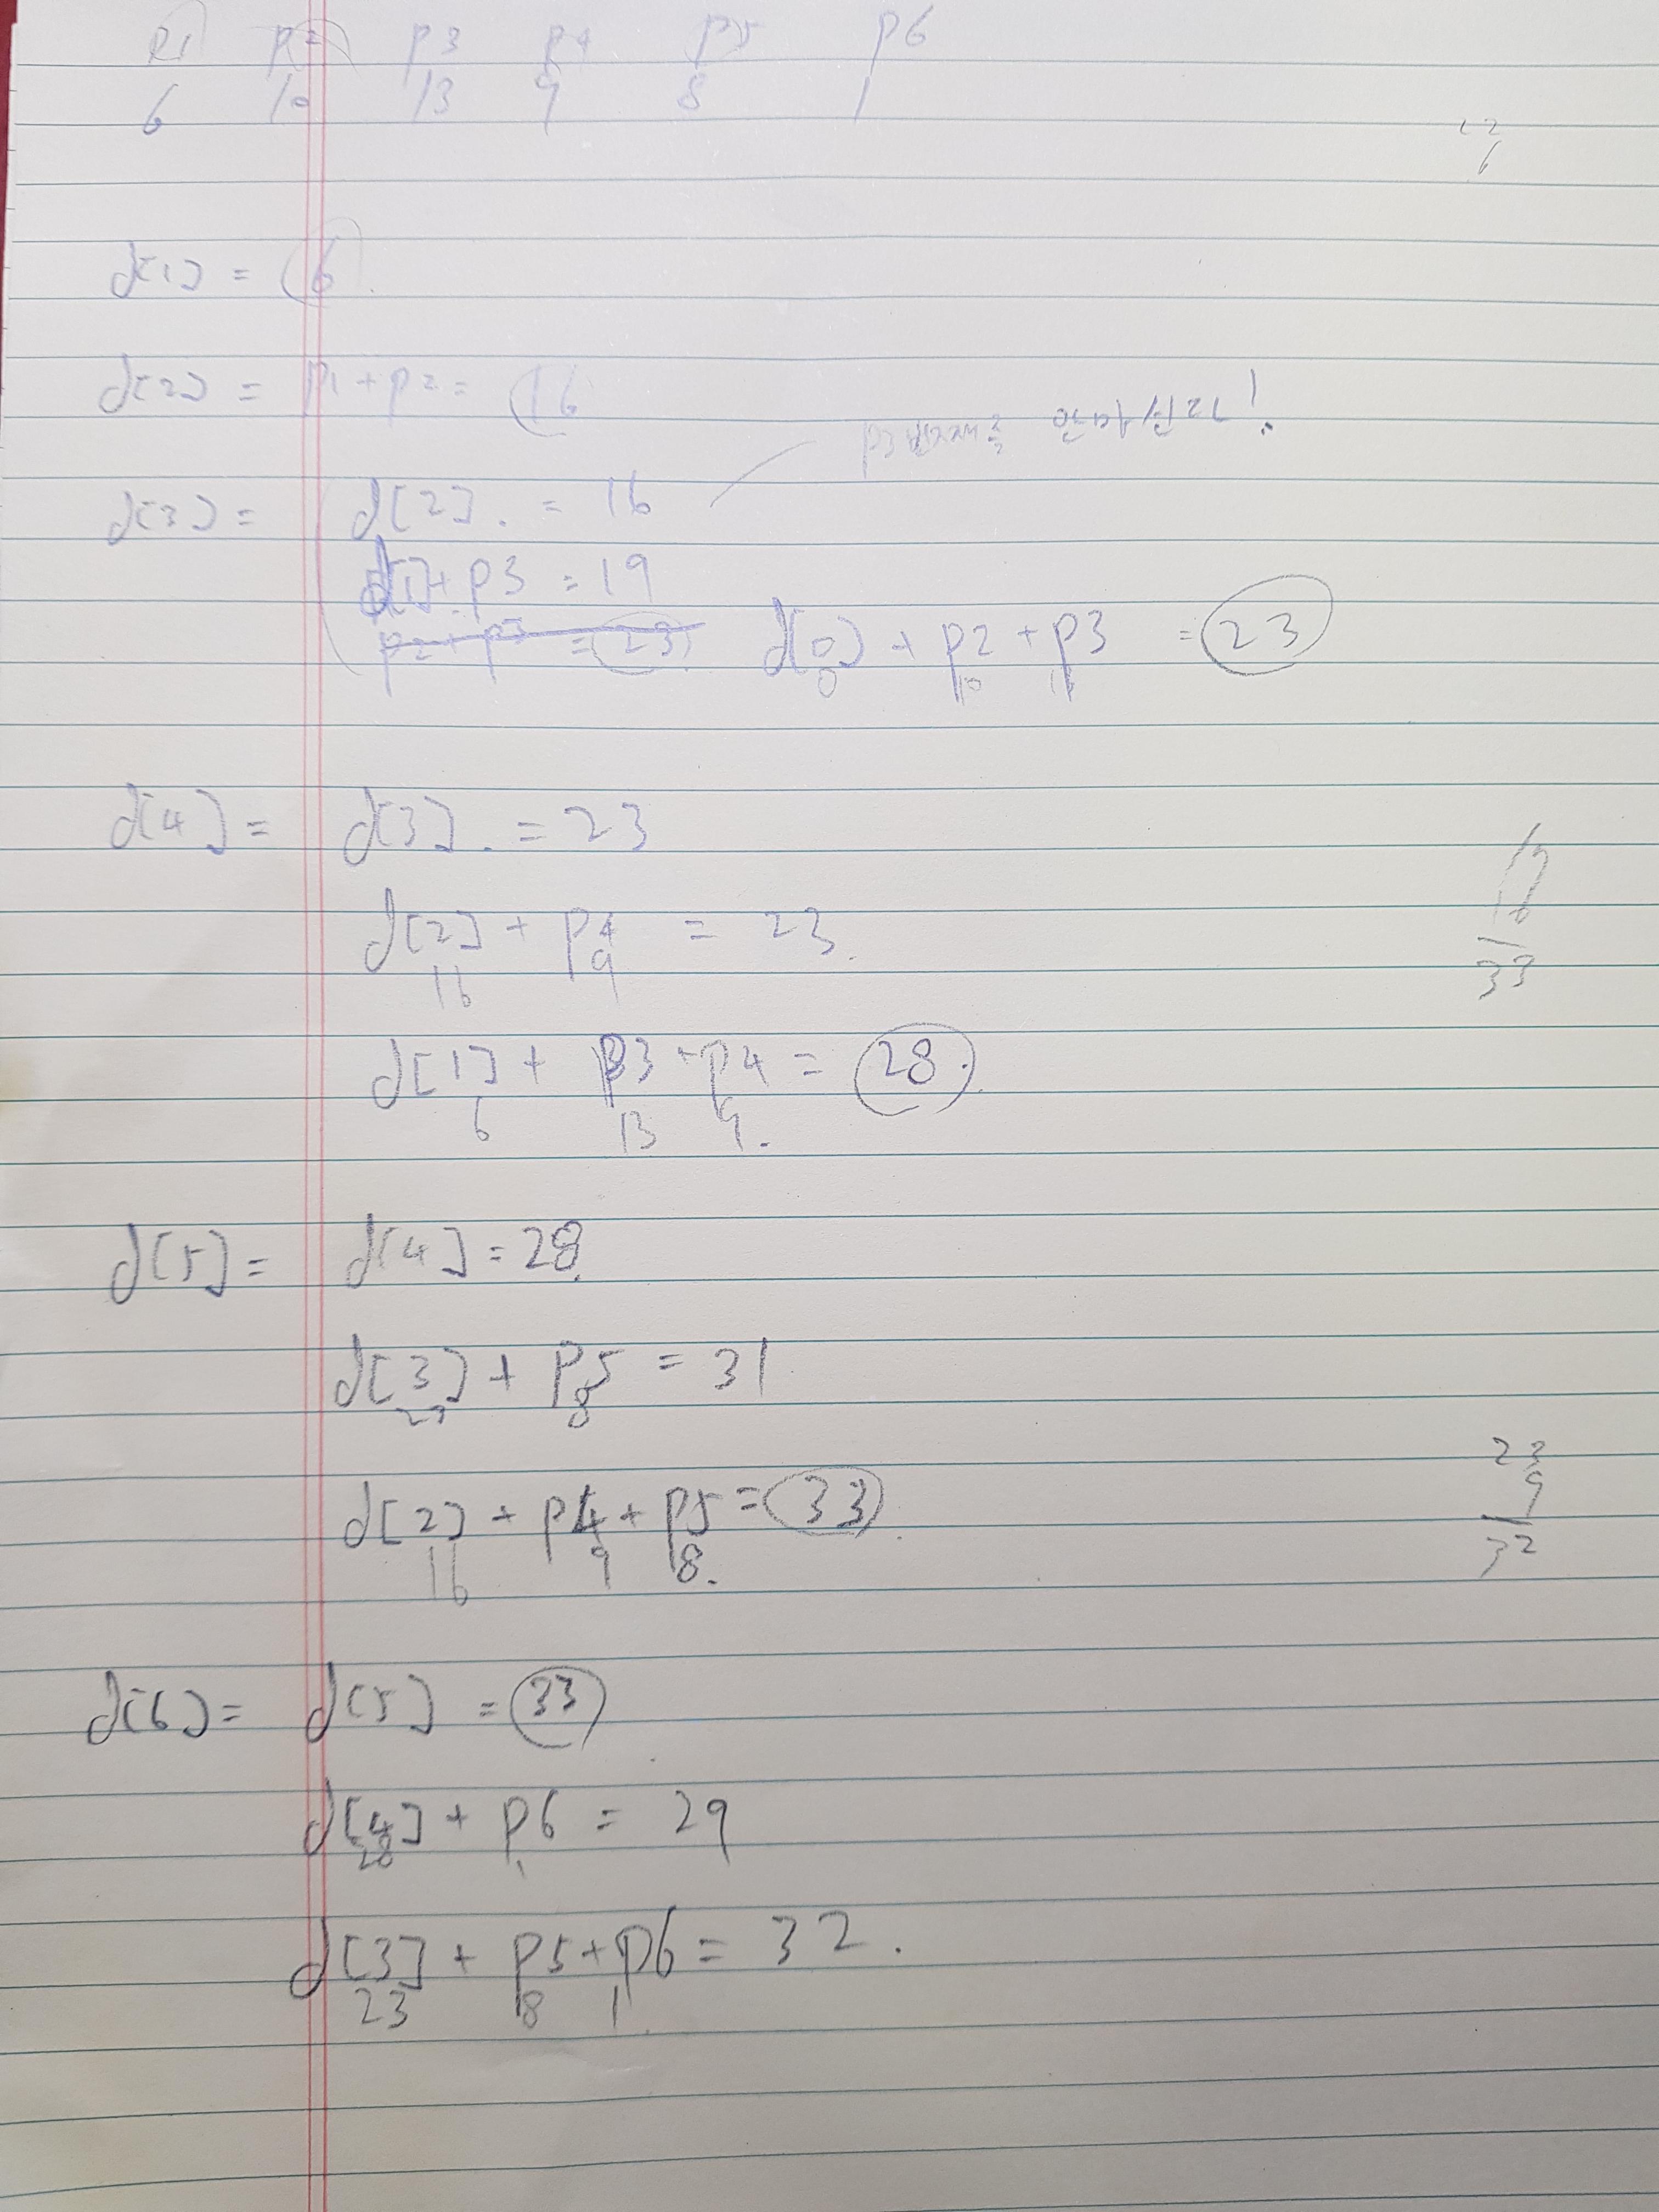 p1 p2 p3 p4 p5 p6
6 10 13 9 8 1
d[1] = 6.
d[2] = p1 + p2 = 16
d[3] = d[2]. = 16
d[1] + p3 = 19
p2 + p3 = 23. d[0] + p2 + p3 = 23
0 10 13
d[4] = d[3]. = 23
d[2] + p4 = 23.
16 9
33
d[1] + p3 + p4 = 28.
6 13 9.
d[5] = d[4] = 28.
d[3] + p5 = 31
23 8
23
9
32
d[2] + p4 + p5 = 33.
16 9 8.
d[6] = d[5] = 33
d[4] + p6 = 29
28 1
d[3] + p5 + p6 = 32.
23 8 1.